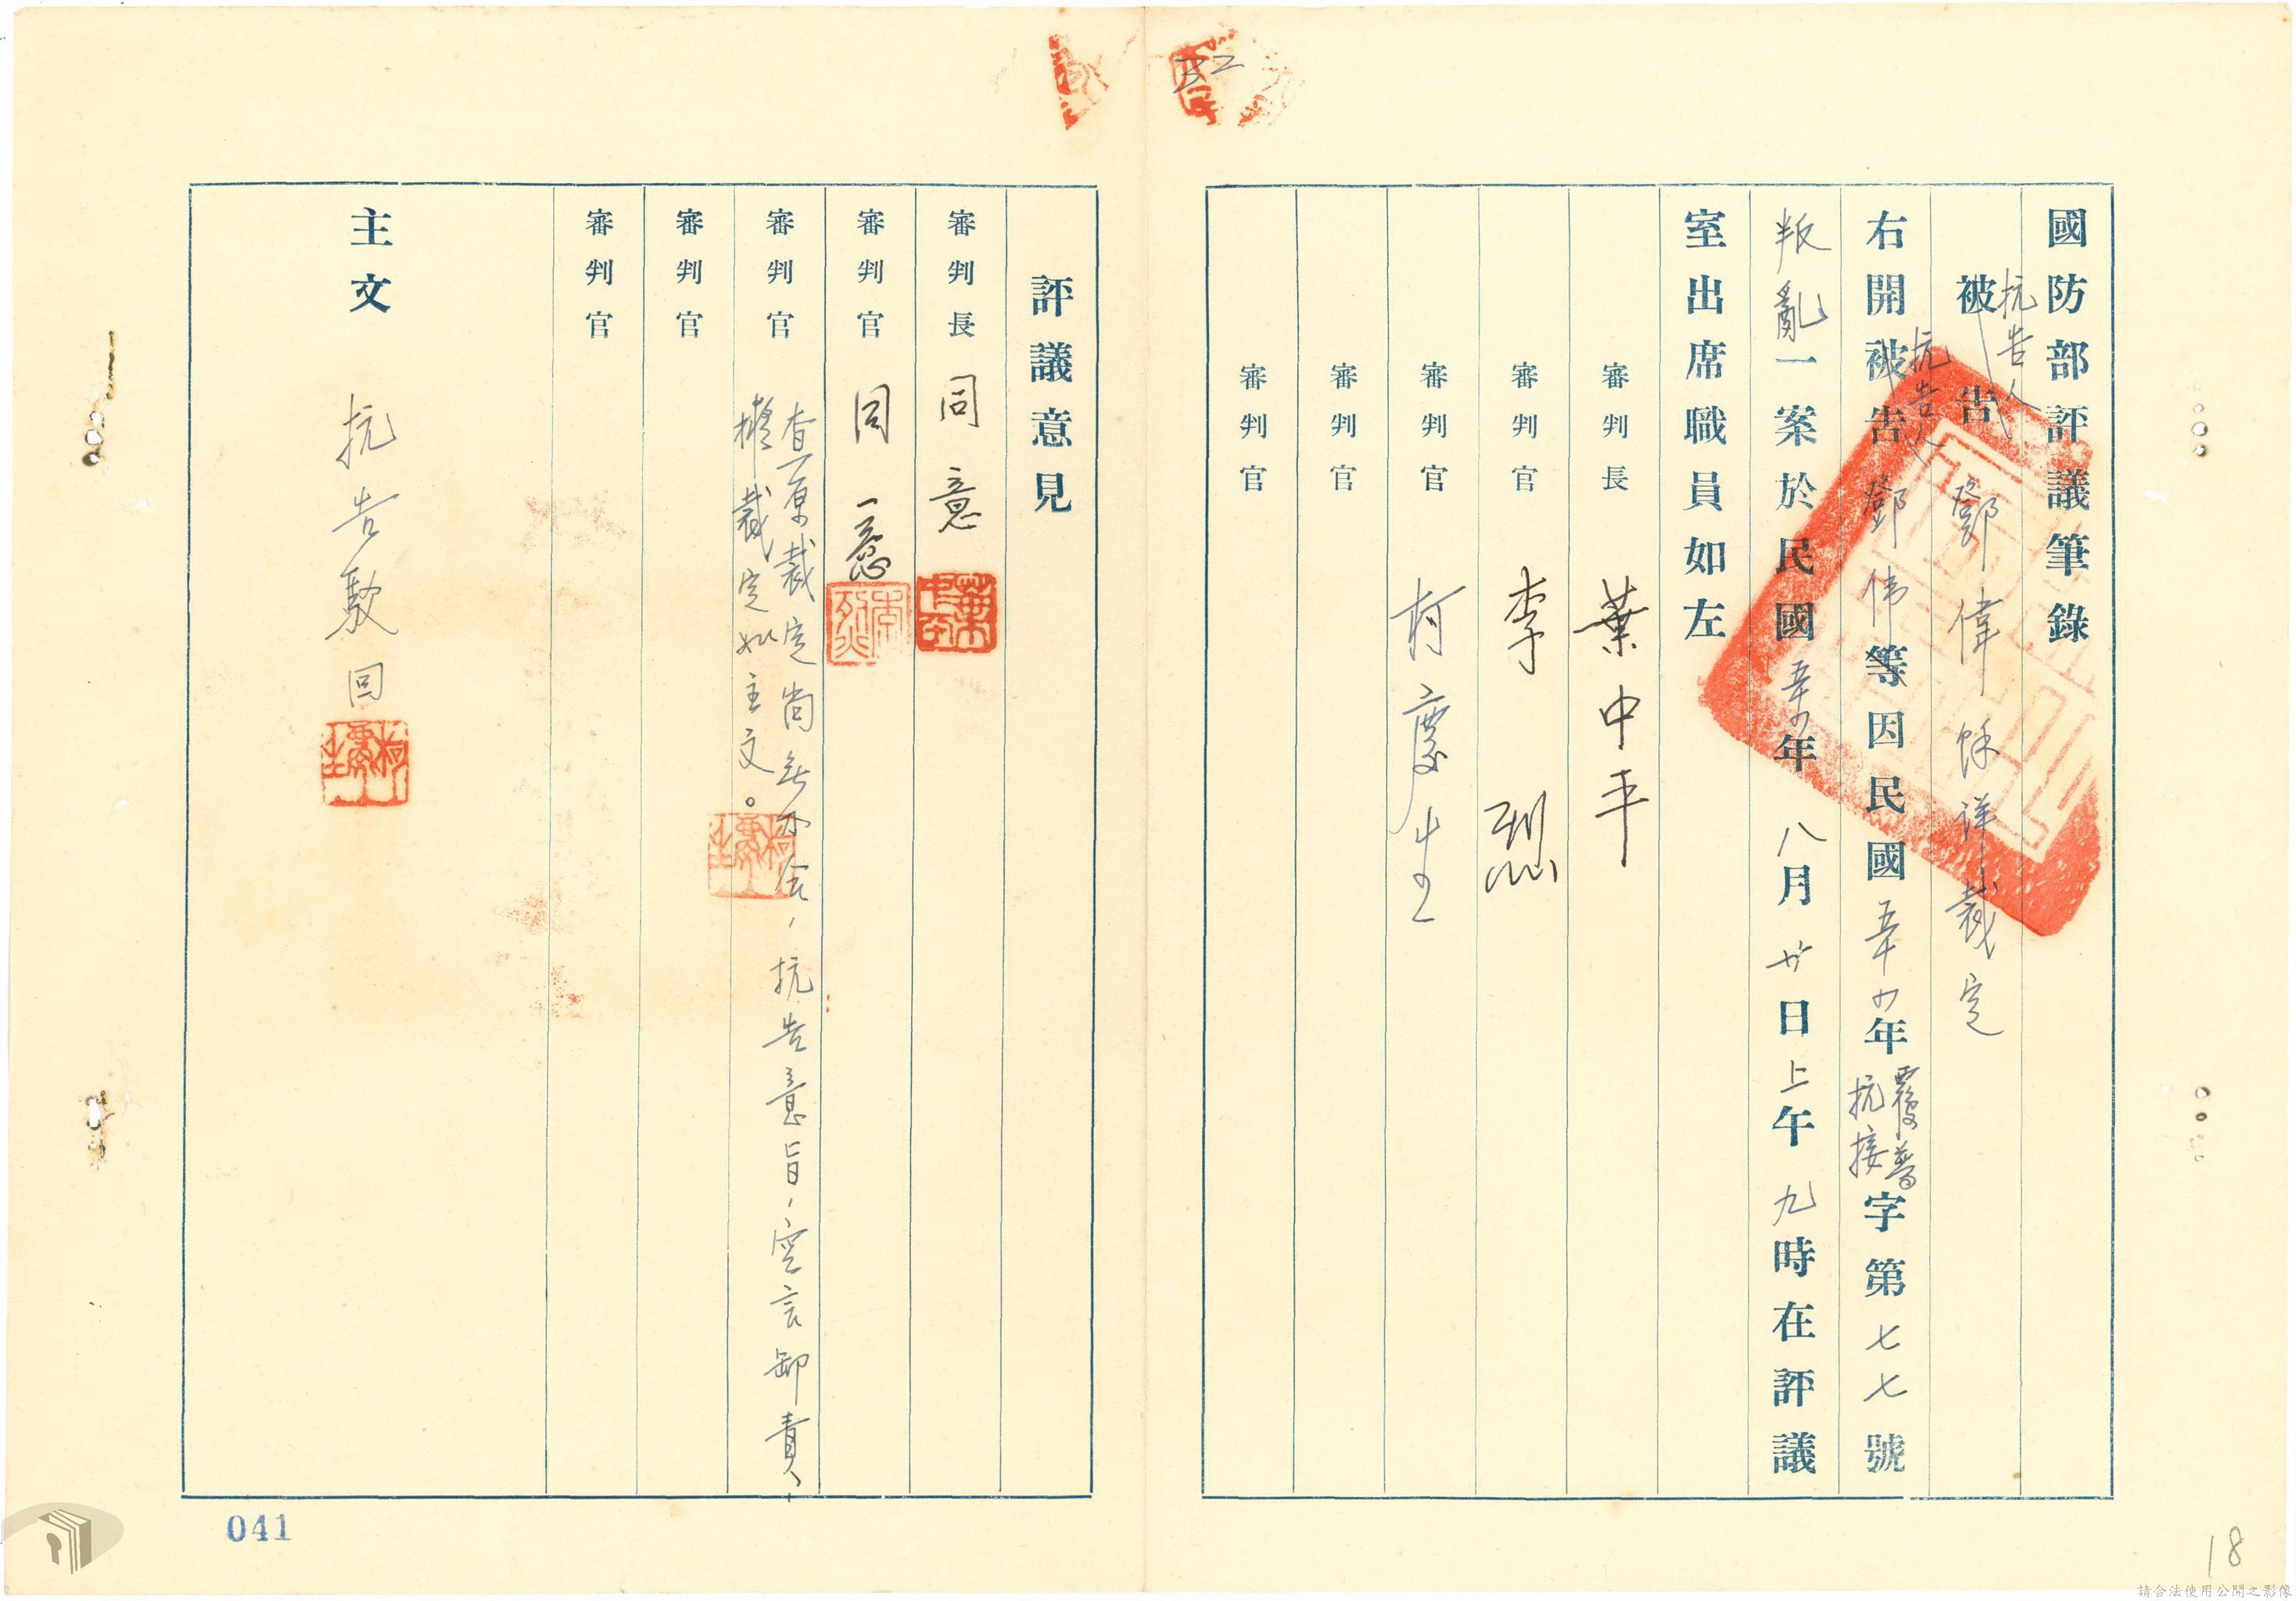 國防部評議筆錄
抗告人
被告 鄧偉 餘詳裁定
抗告人
右開被告鄧伟等因民國五十九年覆普抗接字第七七號
叛亂一案於民國五十九年八月廿日上午九時在評議
室出席職員如左
審判長 葉中平
審判官 李烈
審判官 柯慶生
審判官
審判官
評議意見
審判長 同意
審判官 同意
審判官 查原裁定尚無不合，抗告意旨，空言卸責，
擬裁定如主文。
審判官
審判官
主文 抗告駁回
041
18
請合法使用公開之影像